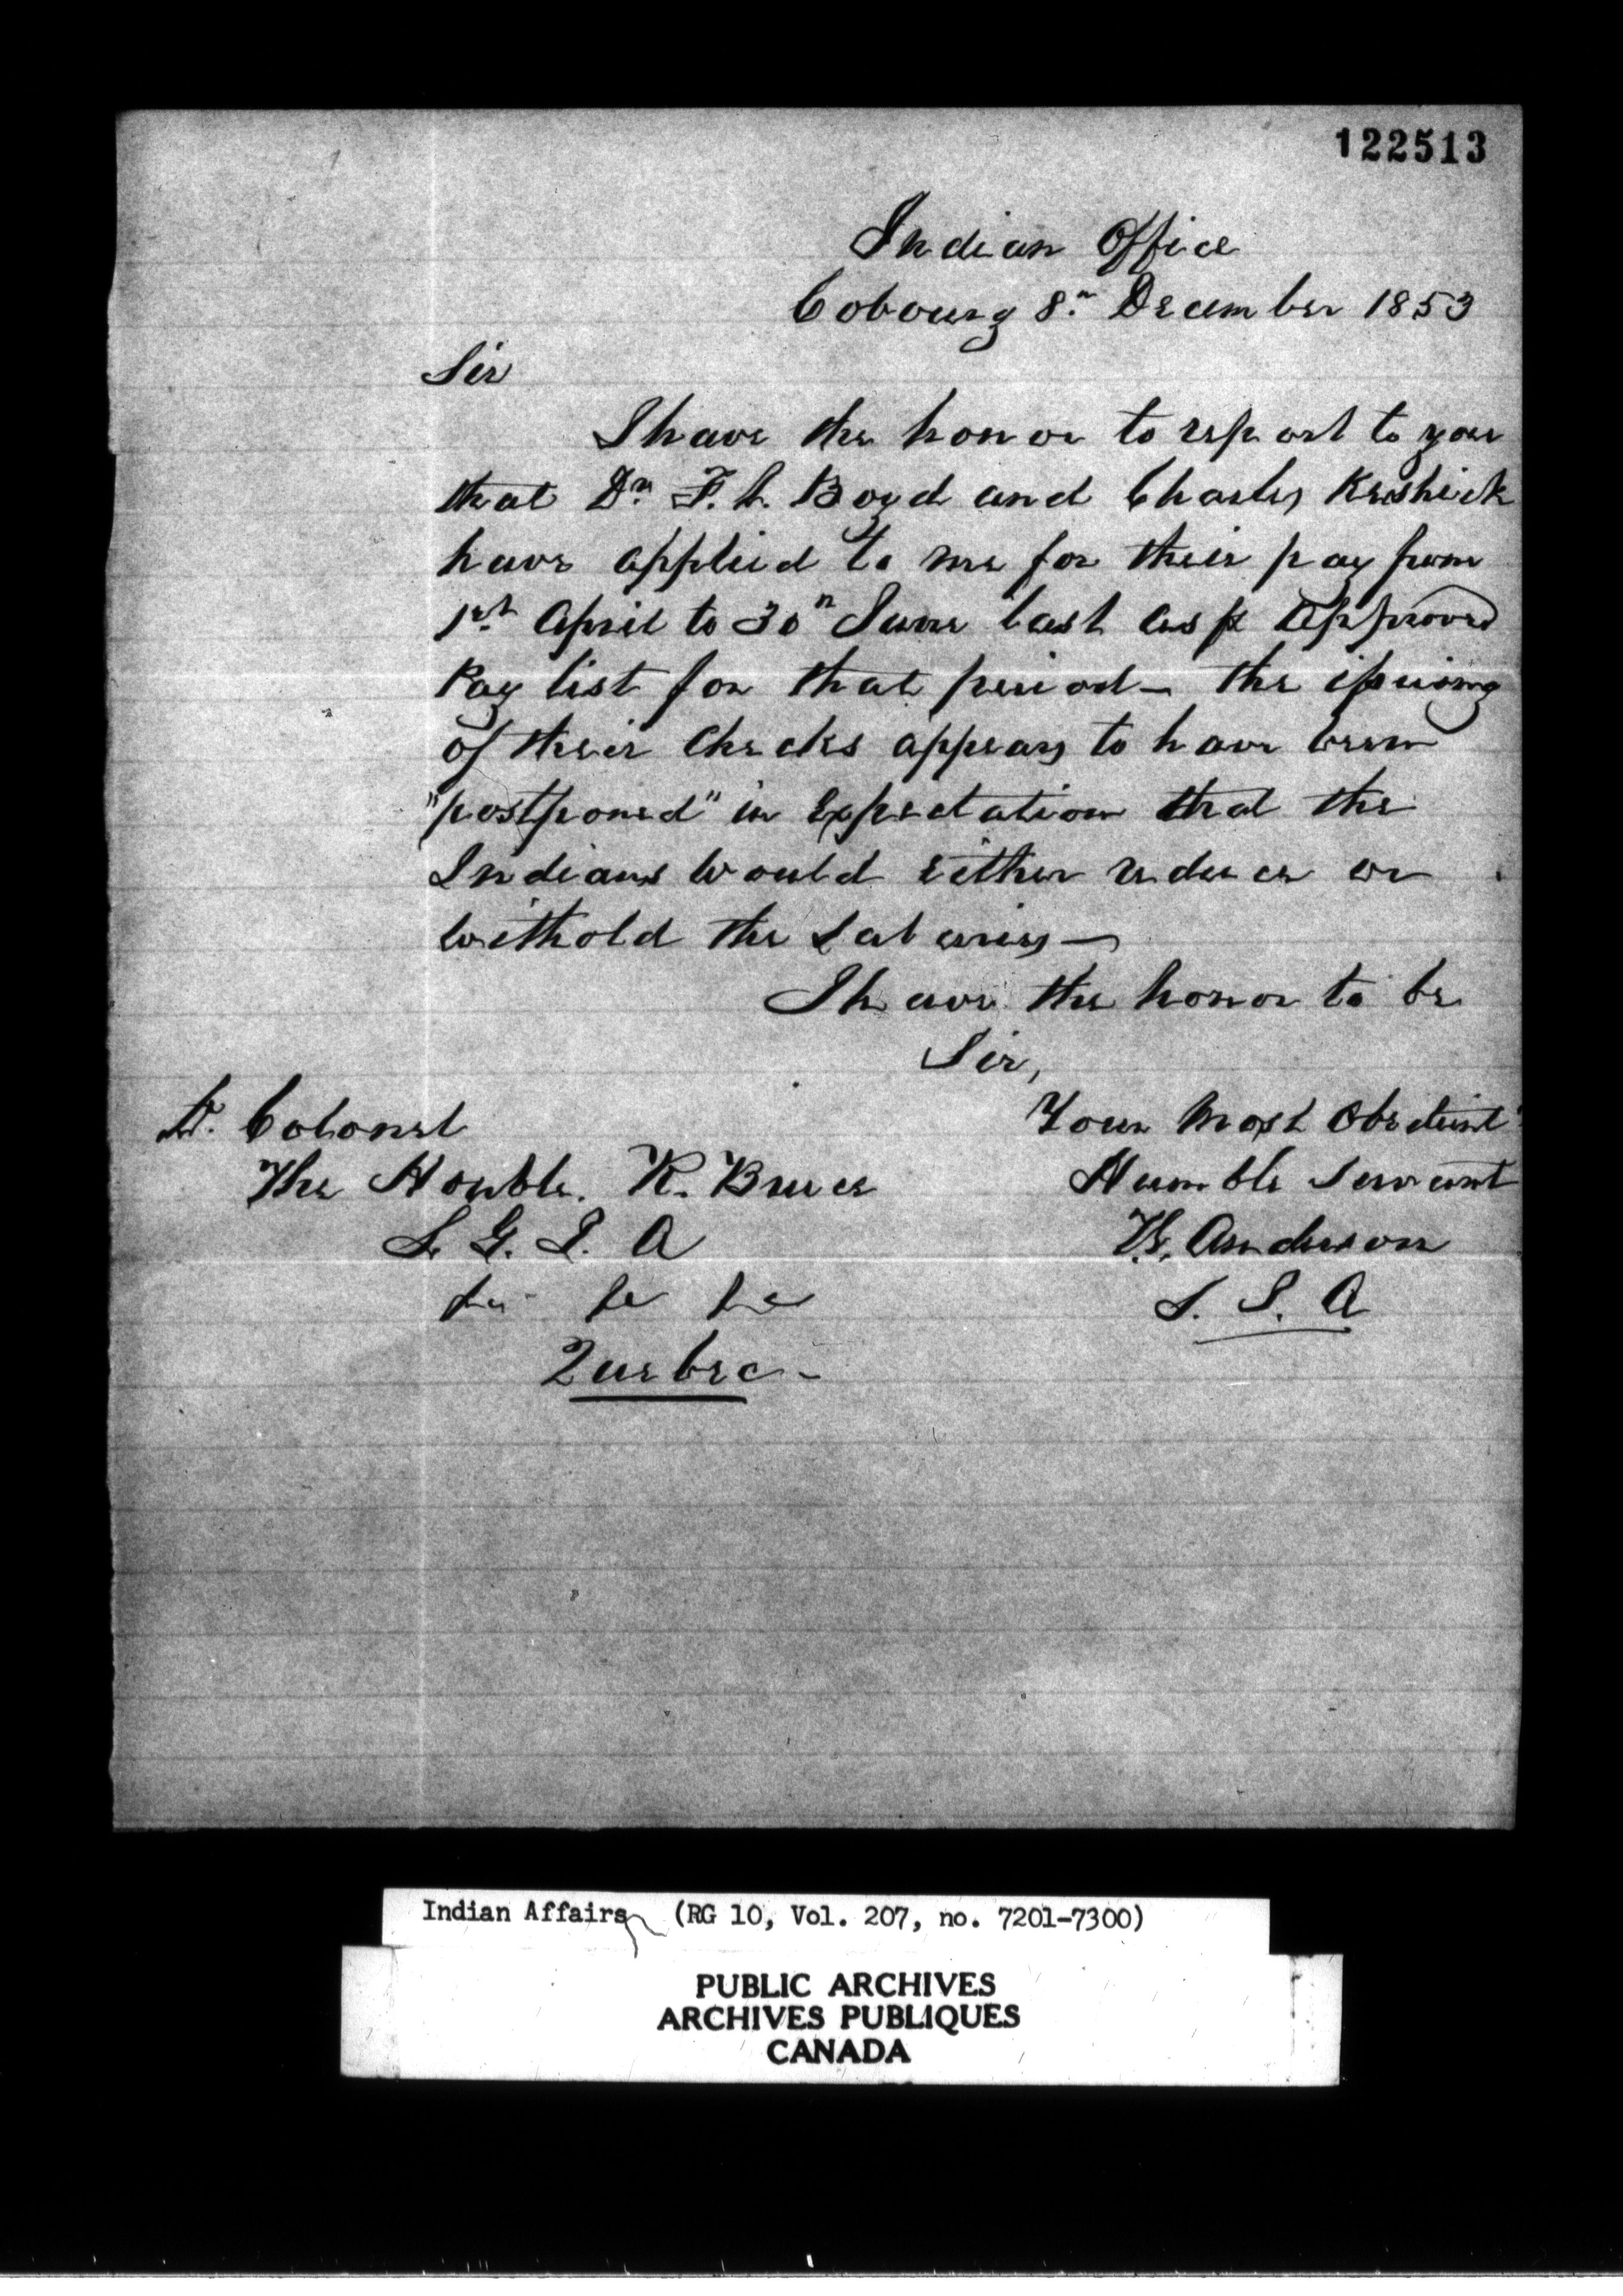 122513
Indian Office
Cobourg 8th December 1853
Sir
I have the honor to report to you
that Dr. F. L. Boyd and Charles Keshick
have applied to me for their pay from
1st April to 30th June last as pr Approved
Pay list for that period — the issuing
of their checks appears to have been
"postponed" in expectation that the
Indians would either reduce or
withold the salaries —
I have the honor to be
Sir,
Lt. Colonel
Your Most Obedient
The Honble. R. Bruce
Humble Servant
S. G. I. A
Anderson
&c &c &c
S. I. A
Quebec -
Indian Affairs (RG 10, Vol. 207, no. 7201-7300)
PUBLIC ARCHIVES
ARCHIVES PUBLIQUES
CANADA